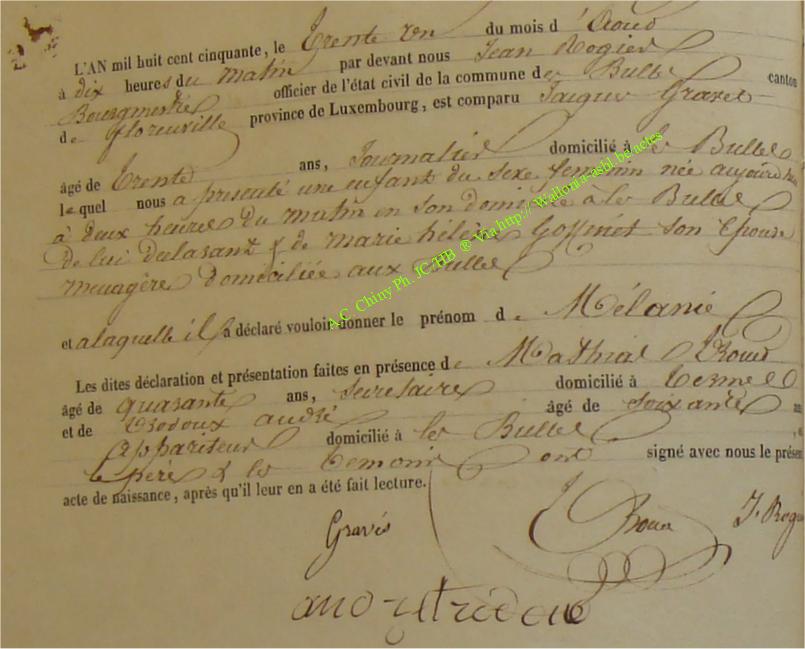 L'AN mil huit cent cinquante, le trente un du mois d'Aoud
à dix heures du matin par devant nous Jean Rogier
Bourgmestre officier de l'état civil de la commune de les Bulles canton
de florenville province de Luxembourg, est comparu Jacque Gravet
âgé de trente ans, Journalier domicilié à les Bulles
lequel nous a présenté une enfant du sexe feminin née aujourd'hui
à deux heures du matin en son domicile à les Bulles
de lui declarant & de marie hélène Gossinet son Epouse
menagère domiciliée aux Bulles
et a laquelle il a déclaré vouloir donner le prénom de Mélanie
Les dites déclaration et présentation faites en présence de Mathias
âgé de quarante ans, secretaire domicilié à termes
et de andré âgé de soixante ans
appariteur domicilié à les Bulles
le père & les temoins ont signé avec nous le présent
acte de naissance, après qu'il leur en a été fait lecture.
Gravés
J. Rogier
A.C. Chiny Ph. JC/HB ® Via http://Wallonia.asbl.be.actes